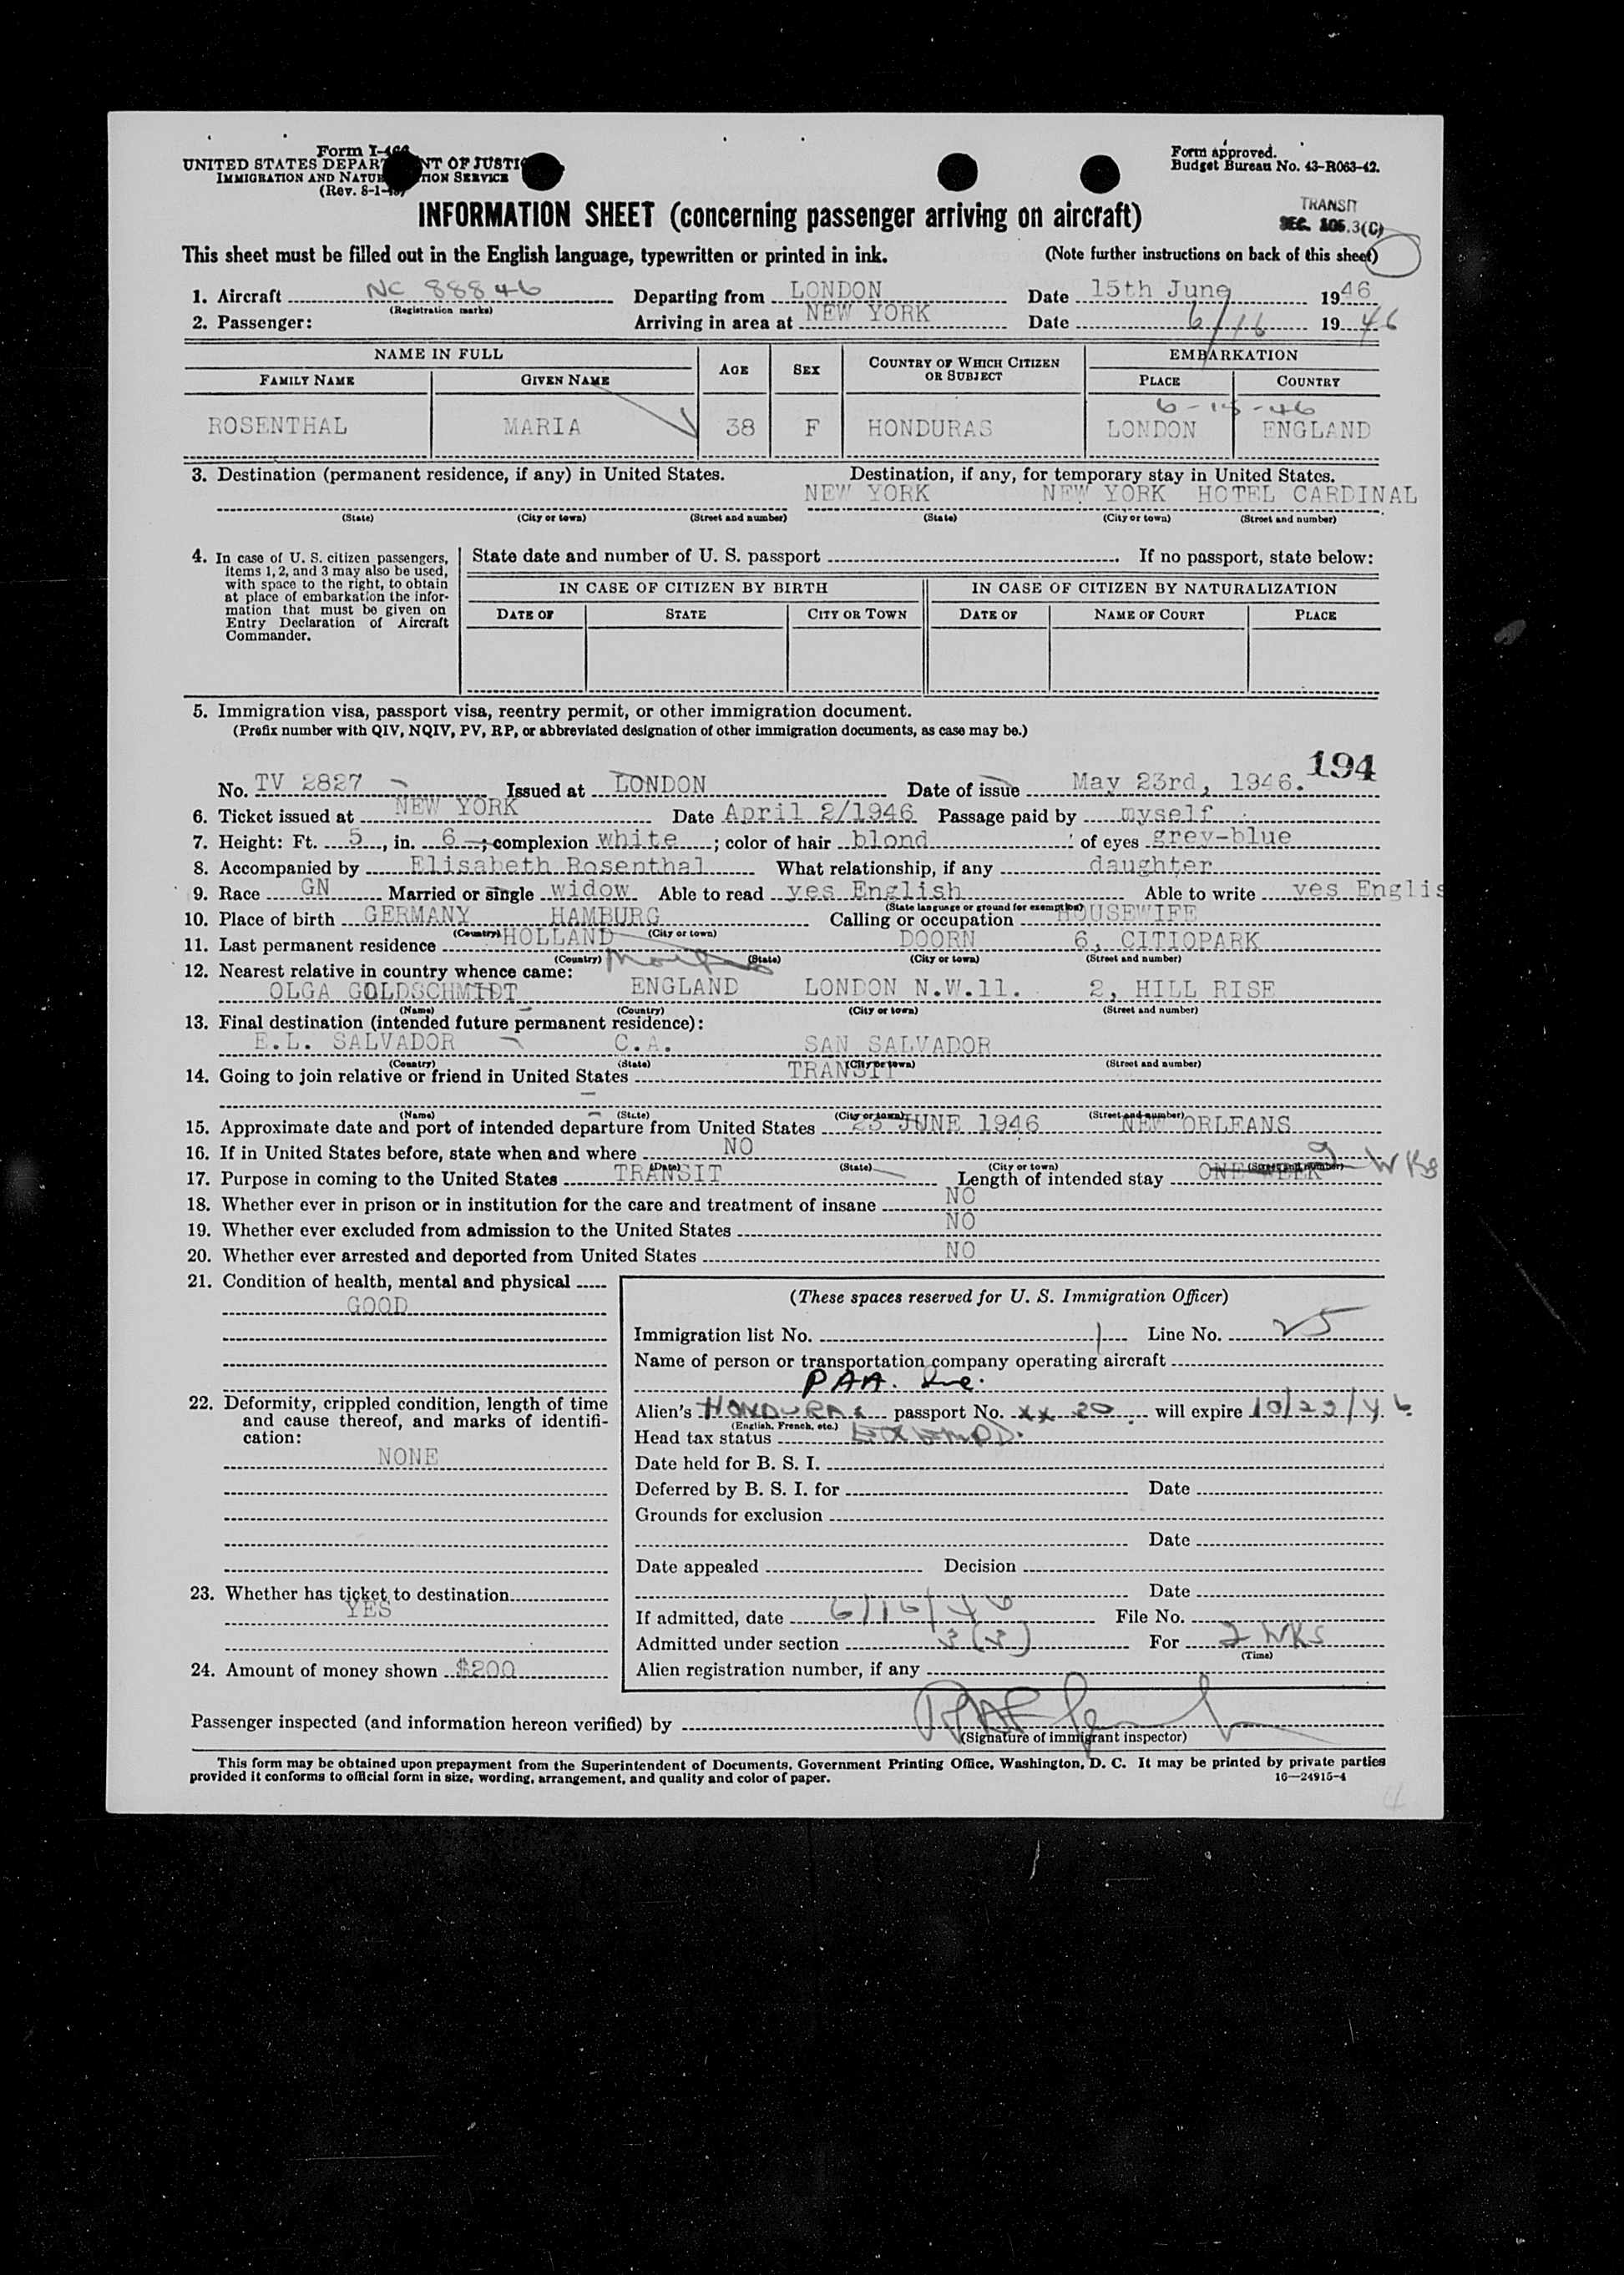 Form I-466
UNITED STATES DEPARTMENT OF JUSTICE
IMMIGRATION AND NATURALIZATION SERVICE
(Rev. 8-1-
Form approved.
Budget Bureau No. 43-R063-42.
TRANSIT
SEC. 105.3(C)
INFORMATION SHEET (concerning passenger arriving on aircraft)
This sheet must be filled out in the English language, typewritten or printed in ink. (Note further instructions on back of this sheet)
1. Aircraft NC 88846 Departing from LONDON Date 15th June 1946
(Registration marks)
2. Passenger: Arriving in area at NEW YORK Date 6/16 1946
NAME IN FULL AGE SEX COUNTRY OF WHICH CITIZEN OR SUBJECT EMBARKATION
FAMILY NAME GIVEN NAME PLACE COUNTRY
6-15-46
ROSENTHAL MARIA 38 F HONDURAS LONDON ENGLAND
3. Destination (permanent residence, if any) in United States. Destination, if any, for temporary stay in United States.
NEW YORK NEW YORK HOTEL CARDINAL
(State) (City or town) (Street and number) (State) (City or town) (Street and number)
4. In case of U. S. citizen passengers, items 1, 2, and 3 may also be used, with space to the right, to obtain at place of embarkation the information that must be given on Entry Declaration of Aircraft Commander.
State date and number of U. S. passport If no passport, state below:
IN CASE OF CITIZEN BY BIRTH IN CASE OF CITIZEN BY NATURALIZATION
DATE OF STATE CITY OR TOWN DATE OF NAME OF COURT PLACE
5. Immigration visa, passport visa, reentry permit, or other immigration document.
(Prefix number with QIV, NQIV, PV, RP, or abbreviated designation of other immigration documents, as case may be.)
194
No. TV 2827 Issued at LONDON Date of issue May 23rd, 1946.
6. Ticket issued at NEW YORK Date April 2/1946 Passage paid by myself
7. Height: Ft. 5, in. 6; complexion white; color of hair blond; of eyes grey-blue
8. Accompanied by Elisabeth Rosenthal What relationship, if any daughter
9. Race GN Married or single widow Able to read yes English Able to write yes Englis
(State language or ground for exemption)
10. Place of birth GERMANY HAMBURG Calling or occupation HOUSEWIFE
(Country) (City or town)
11. Last permanent residence HOLLAND DOORN 6, CITIOPARK
(Country) (State) (City or town) (Street and number)
12. Nearest relative in country whence came:
OLGA GOLDSCHMIDT ENGLAND LONDON N.W.11. 2, HILL RISE
(Name) (Country) (City or town) (Street and number)
13. Final destination (intended future permanent residence):
E.L. SALVADOR C.A. SAN SALVADOR
(Country) (State) (City or town) (Street and number)
14. Going to join relative or friend in United States TRANSIT
(Name) (State) (City or town) (Street and number)
15. Approximate date and port of intended departure from United States 23 JUNE 1946 NEW ORLEANS
16. If in United States before, state when and where NO
(Date) (State) (City or town) (Street and number)
17. Purpose in coming to the United States TRANSIT Length of intended stay ONE WEEK 2 WKS
18. Whether ever in prison or in institution for the care and treatment of insane NO
19. Whether ever excluded from admission to the United States NO
20. Whether ever arrested and deported from United States NO
21. Condition of health, mental and physical
GOOD
22. Deformity, crippled condition, length of time and cause thereof, and marks of identification:
NONE
23. Whether has ticket to destination
YES
24. Amount of money shown $200
(These spaces reserved for U. S. Immigration Officer)
Immigration list No. 1 Line No. 25
Name of person or transportation company operating aircraft
PAA. Inc.
Alien's HONDURAS passport No. xx 20 will expire 10/23/46
(English, French, etc.)
Head tax status
Date held for B. S. I.
Deferred by B. S. I. for Date
Grounds for exclusion
Date
Date appealed Decision
Date
If admitted, date 6/16/46 File No.
Admitted under section 3(3) For 2 WKS
(Time)
Alien registration number, if any
Passenger inspected (and information hereon verified) by
(Signature of immigrant inspector)
This form may be obtained upon prepayment from the Superintendent of Documents, Government Printing Office, Washington, D. C. It may be printed by private parties
provided it conforms to official form in size, wording, arrangement, and quality and color of paper. 16—24915-4